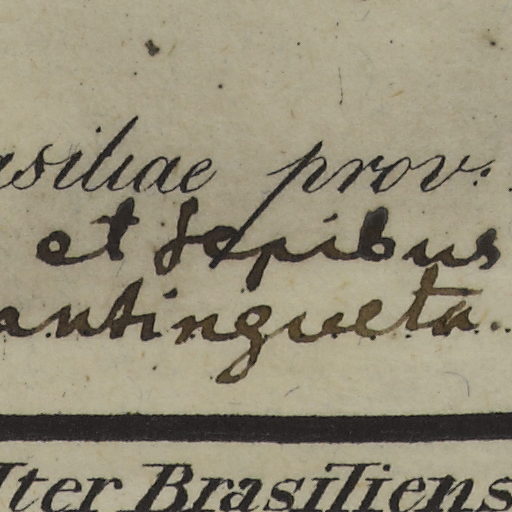 asiliae prov.
et sepibus
antingueta..
Iter Brasiliens